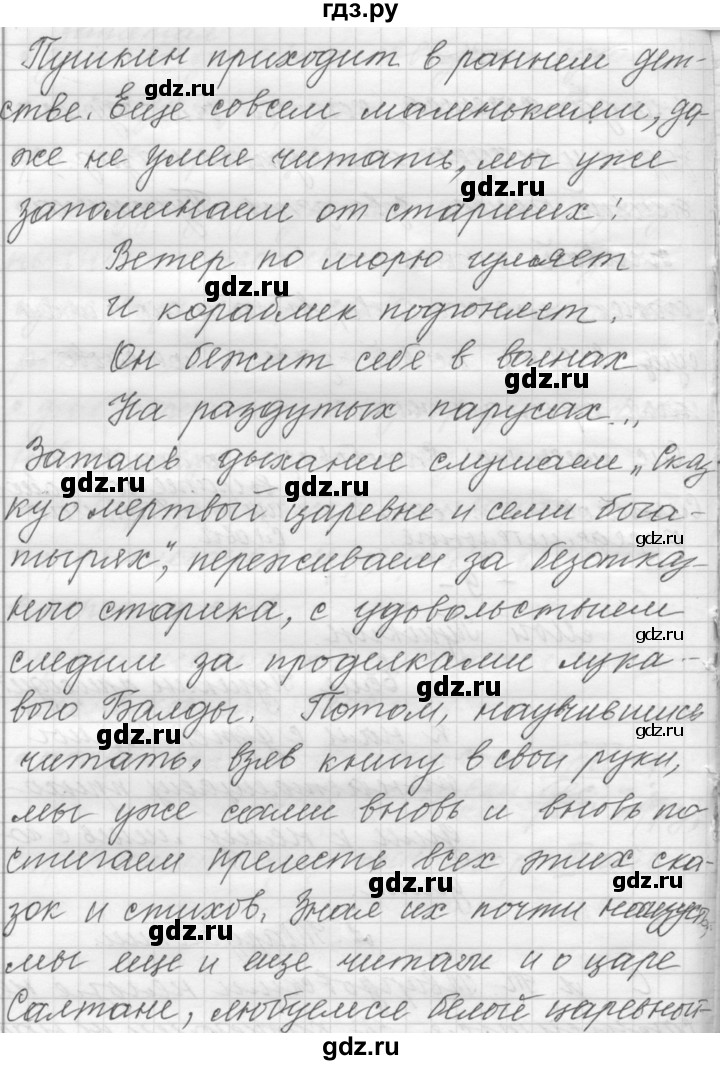 гдз.ру
Пушкин приходит в раннем дет-
gdz.ru gdz.ru
стве. Еще совсем маленькими, да-
же не умея читать, мы уже
gdz.ru
запоминаем от старших!
Ветер по морю гуляет
gdz.ru
И кораблик подгоняет.
Он бежит себе в волнах
gdz.ru
На раздутых парусах...
Затаив дыхание слушаем „Сказ-
gdz.ru gdz.ru
ку о мертвой царевне и семи бога-
gdz.ru
тырях", переживаем за безотказ-
ного старика, с удовольствием
gdz.ru
следим за проделками лука-
gdz.ru
вого Балды. Потом, научившись
gdz.ru gdz.ru
читать, взяв книгу в свои руки,
мы уже сами вновь и вновь по
стигаем прелесть всех этих ска-
gdz.ru gdz.ru
зок и стихов. Зная их почти наизусть,
gdz.ru
мы еще и еще читаем и о царе
gdz.ru
Салтане, любуемся белой царевной-
gdz.ru